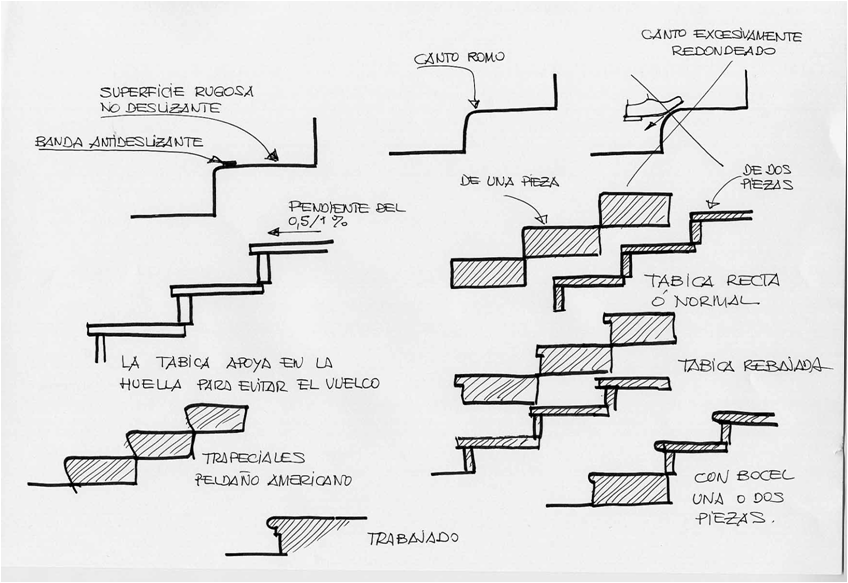 CANTO EXCESIVAMENTE
REDONDEADO
CANTO ROMO
SUPERFICIE RUGOSA
NO DESLIZANTE
BANDA ANTIDESLIZANTE
DE UNA PIEZA
DE DOS
PIEZAS
PENDIENTE DEL
0,5/1%
TABICA RECTA
Ó NORMAL
LA TABICA APOYA EN LA
HUELLA PARA EVITAR EL VUELCO
TABICA REBAJADA
TRAPECIALES
PELDAÑO AMERICANO
CON BOCEL
UNA O DOS
PIEZAS.
TRABAJADO